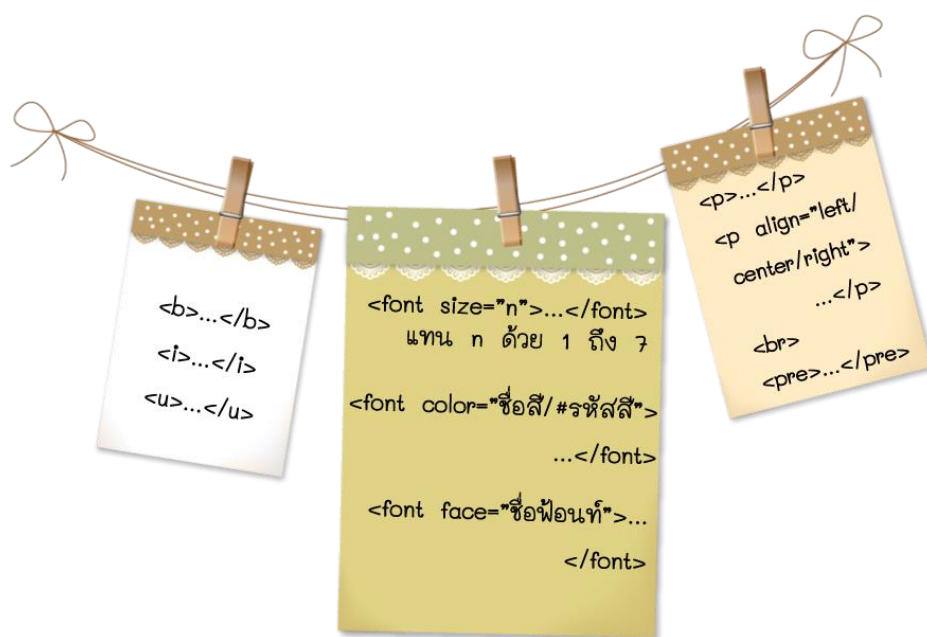 <b>...</b>
<i>...</i>
<u>...</u>
<font size="n">...</font>
แทน n ด้วย 1 ถึง 7
<font color="ชื่อสี/#รหัสสี">
...</font>
<font face="ชื่อฟ้อนท์">...
</font>
<p>...</p>
<p align="left/
center/right">
...</p>
<br>
<pre>...</pre>